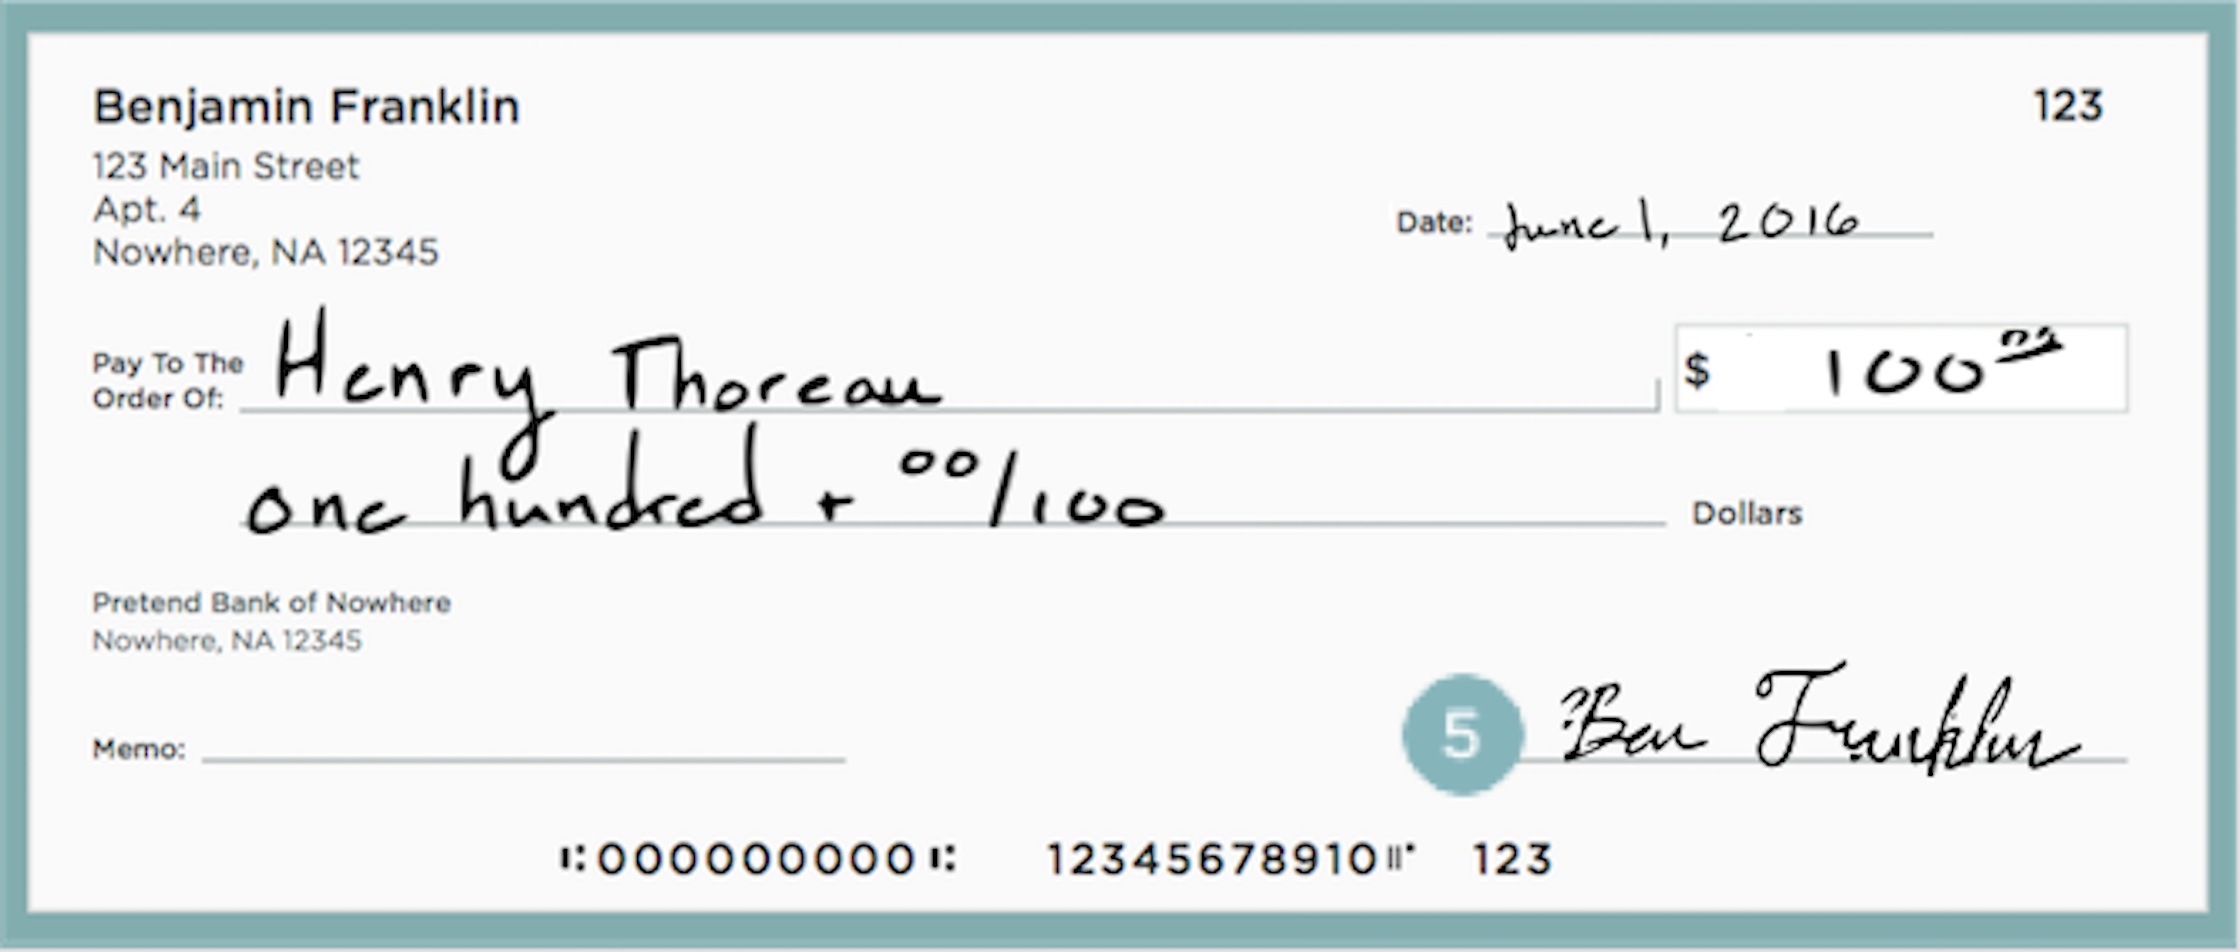 Benjamin Franklin 123
123 Main Street
Apt. 4
Nowhere, NA 12345
Date: June 1, 2016
Pay To The
Order Of: Henry Thoreau $ 100
one hundred + 00/100 Dollars
Pretend Bank of Nowhere
Nowhere, NA 12345
Memo:
5 Ben Franklin
⑆000000000⑆ 12345678910⑈ 123